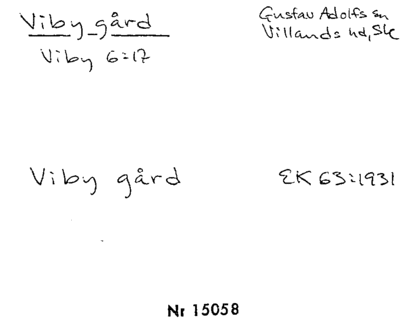 Viby gård
Gustav Adolfs sn
Villands hd, Sk
Viby 6:17
Viby gård
EK 63:1931
Nr 15058